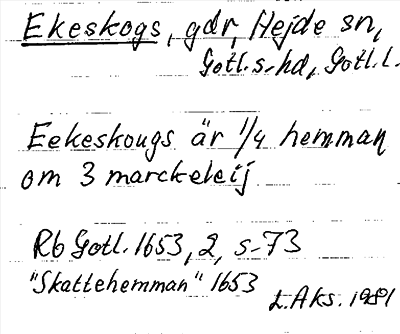 Ekeskogs, gdr, Hejde sn,
Gotl. s. hd, Gotl. l.
Eekeskougs är 1/4 hemman
om 3 marckeleij
Rb Gotl. 1653, 2, s. 73
"Skattehemman" 1653
L. Aks. 1981